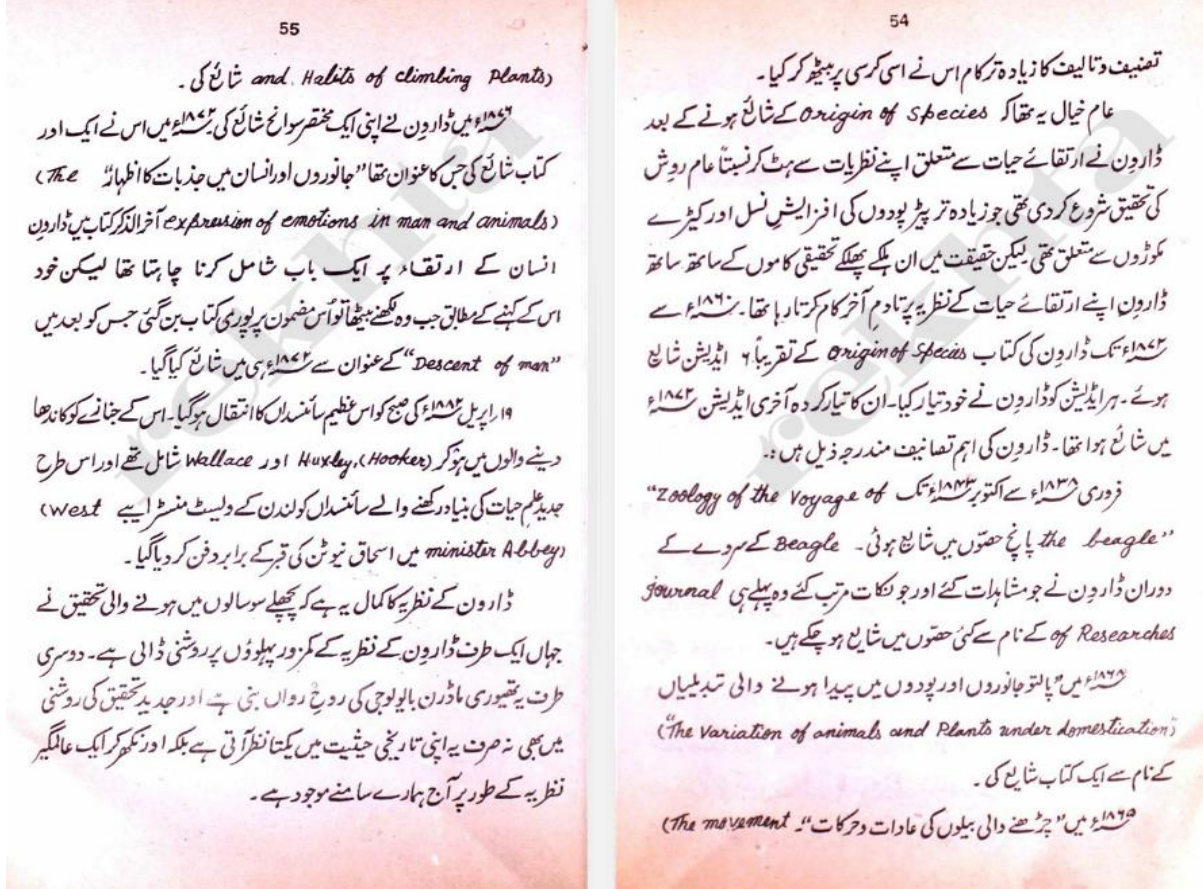 54
تصنیف و تالیف کا زیادہ تر کام اس نے اسی کرسی پر بیٹھ کر کیا۔
عام خیال یہ تھا کہ Origin of Species کے شائع ہونے کے بعد
ڈارون نے ارتقائے حیات سے متعلق اپنے نظریات سے ہٹ کر نسبتاً عام روش
کی تحقیق شروع کر دی تھی جو زیادہ تر پیڑ پودوں کی افزایشِ نسل اور کیڑے
مکوڑوں سے متعلق تھی لیکن حقیقت میں ان ہلکے پھلکے تحقیقی کاموں کے ساتھ ساتھ
ڈارون اپنے ارتقائے حیات کے نظریہ پر تادمِ آخر کام کرتا رہا تھا۔ ۱۸۶۰ء سے
۱۸۷۲ء تک ڈارون کی کتاب Origin of Species کے تقریباً ۶ ایڈیشن شایع
ہوئے۔ ہر ایڈیشن کو ڈارون نے خود تیار کیا۔ ان کا تیار کردہ آخری ایڈیشن ۱۸۷۲ء
میں شائع ہوا تھا۔ ڈارون کی اہم تصانیف مندرجہ ذیل ہیں :۔
فروری ۱۸۳۸ء سے اکتوبر ۱۸۴۳ء تک "Zoology of the Voyage of
the beagle" پانچ حصّوں میں شایع ہوئی۔ Beagle کے سروے کے
دوران ڈارون نے جو مشاہدات کئے اور جو نکات مرتب کئے وہ پہلے ہی Journal
of Researches کے نام سے کئی حصّوں میں شایع ہو چکے ہیں۔
۱۸۶۸ء میں "پالتو جانوروں اور پودوں میں پیدا ہونے والی تبدیلیاں
(The Variation of animals and Plants under domestication")
کے نام سے ایک کتاب شایع کی۔
۱۸۶۵ء میں "چڑھنے والی بیلوں کی عادات و حرکات"۔ (The movement
55
and Habits of climbing Plants) شائع کی۔
۱۸۷۶ء میں ڈارون نے اپنی ایک مختصر سوانح شائع کی ۱۸۷۲ء میں اس نے ایک اور
کتاب شائع کی جس کا عنوان تھا "جانوروں اور انسان میں جذبات کا اظہار" (The
expression of emotions in man and animals) آخر الذکر کتاب میں ڈارون
انسان کے ارتقاء پر ایک باب شامل کرنا چاہتا تھا لیکن خود
اس کے کہنے کے مطابق جب وہ لکھنے بیٹھا تو اُس مضمون پر پوری کتاب بن گئی جس کو بعد میں
"Descent of man" کے عنوان سے ۱۸۷۲ء ہی میں شائع کیا گیا۔
۱۹ اپریل ۱۸۸۲ء کی صبح کو اس عظیم سائنسداں کا انتقال ہو گیا۔ اس کے جنازے کو کاندھا
دینے والوں میں ہوکر (Hooker)، Huxley اور Wallace شامل تھے اور اس طرح
جدید علمِ حیات کی بنیاد رکھنے والے سائنسداں کو لندن کے ویسٹ منسٹر ایبے (West
minister Abbey) میں اسحاق نیوٹن کی قبر کے برابر دفن کر دیا گیا۔
ڈارون کے نظریہ کا کمال یہ ہے کہ پچھلے سو سالوں میں ہونے والی تحقیق نے
جہاں ایک طرف ڈارون کے نظریہ کے کمزور پہلوؤں پر روشنی ڈالی ہے۔ دوسری
طرف یہ تھیوری ماڈرن بایولوجی کی روحِ رواں بنی ہے اور جدید تحقیق کی روشنی
میں بھی نہ صرف یہ اپنی تاریخی حیثیت میں یکتا نظر آتی ہے بلکہ اور نکھر کر ایک عالمگیر
نظریہ کے طور پر آج ہمارے سامنے موجود ہے۔
rekhta
rekhta